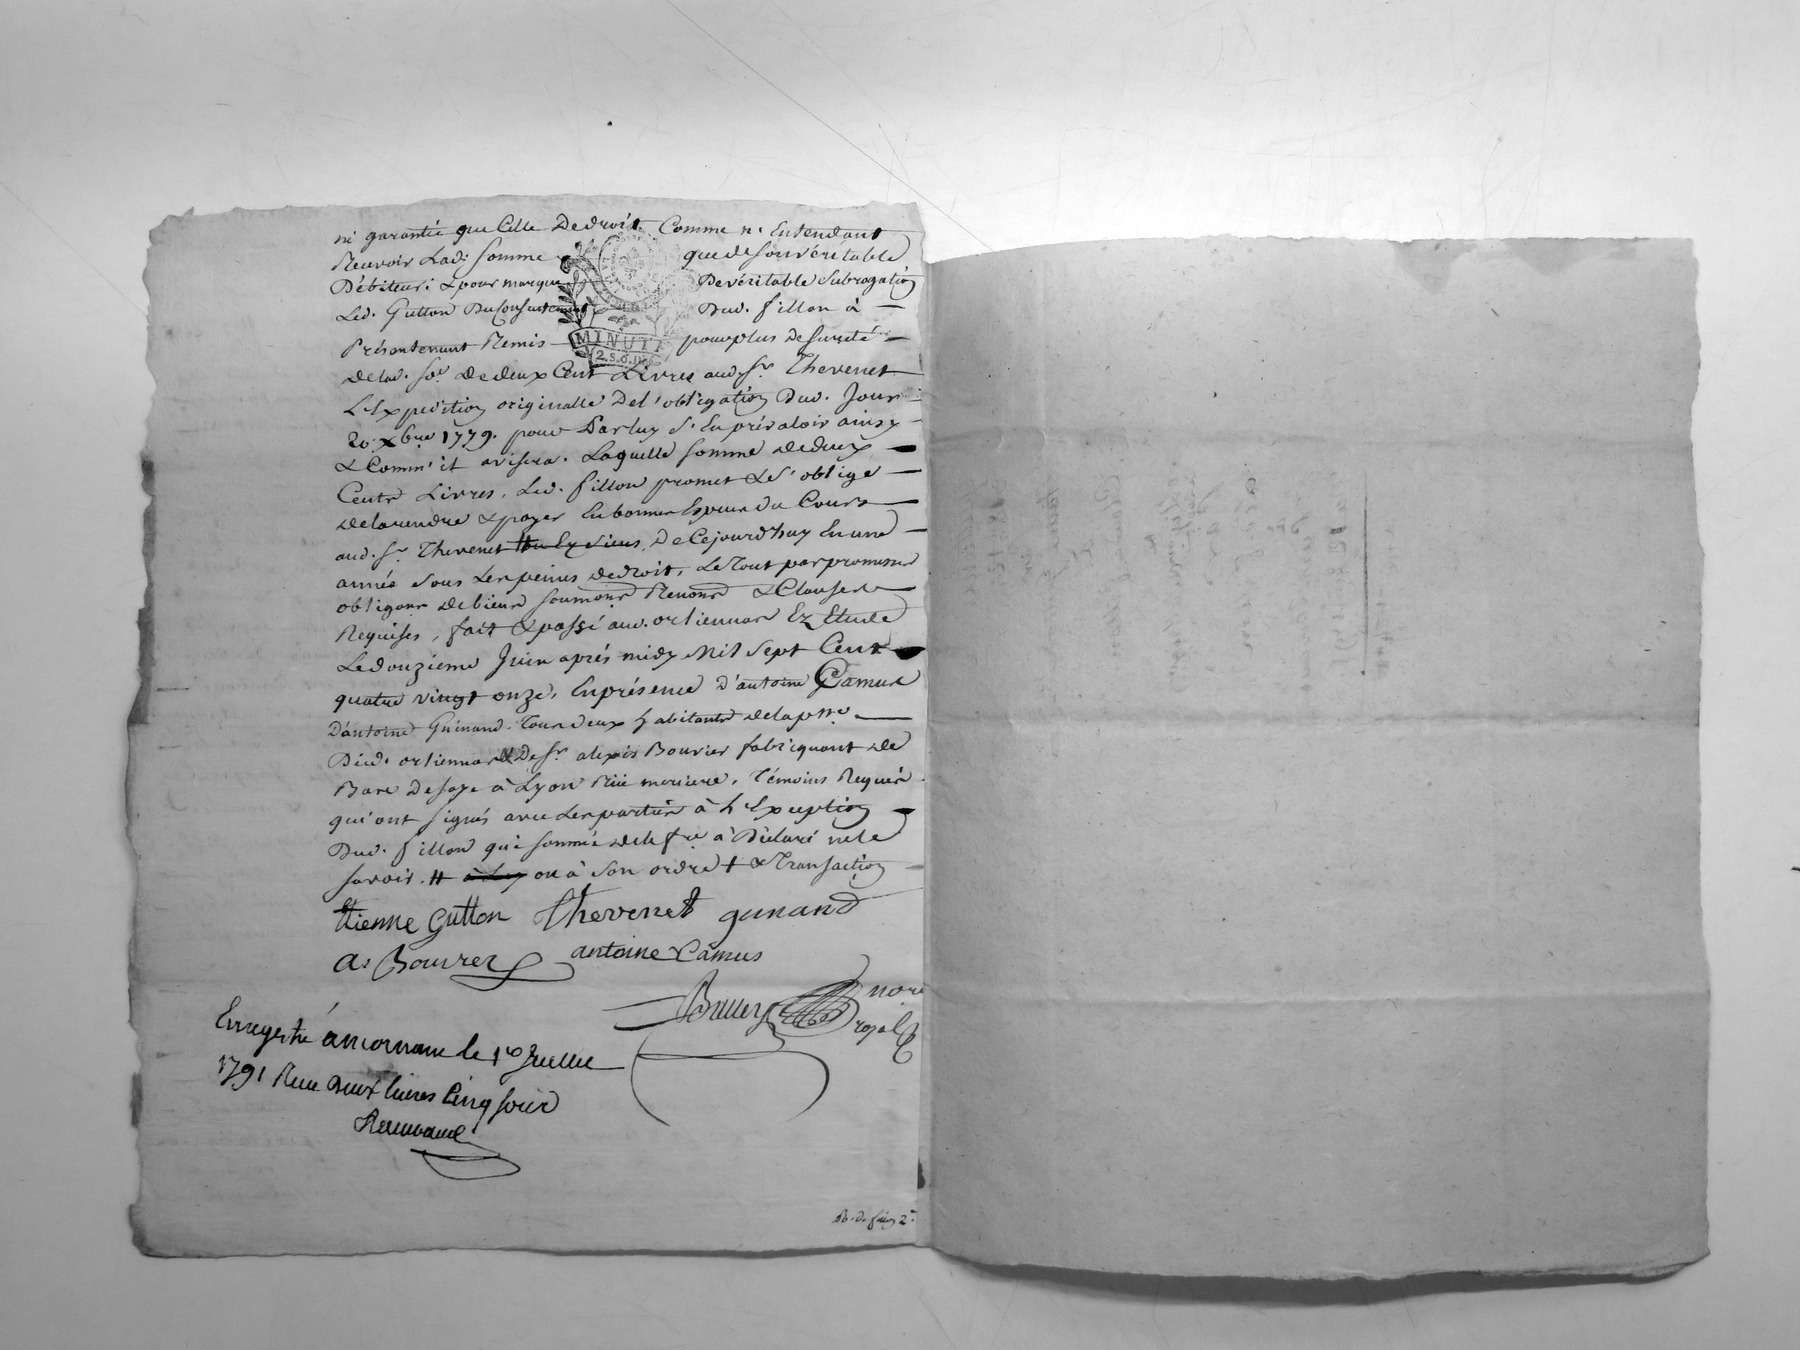 ni garantie que Celle De droit, Comme n'Entendant
Recevoir Lad: Somme que de son véritable
Débiteur; & pour marque De véritable Subrogation
Led. Gutton Du Consentement Dud. fillon à
Présentement Remis pour plus De sureté
de lad. Se. de deux Cent Livres aud. Sr. Thevenet
L'Expédition originalle De l'obligation Dud. Jour
20. Xbre 1779. pour Par luy S'En prévaloir ainsy
& Comm'il avisera. Laquelle somme de deux
Cents Livres, Led. fillon promet & S'oblige
de la rendre & payer En bonnes Espèces du Cours
aud. Sr. Thevenet De Cejourd'huy En une
année Sous Les peines de droit, Le Tout par promesses
obligons de biens soumons Renons & Clauses
Requises, fait & passé aud. orlienнas Ez Etude
Le douzieme Juin après midy Mil Sept Cent
quatre vingt onze, En présence d'antoine Camus
D'antoine Guinand Tous deux habitants de la psse
Dud. orliennas & De Sr. alexis Bouvier fabriquant de
Bas De soye à Lyon Rüe merciere, Témoins Requis
qui ont signés avec Les parties à L'Exception
Dud. fillon qui sommé de le fre à Déclaré ne le
savoir. # ou à Son ordre + & Transaction
Etienne Gutton Thevenet guinand
A. Bouvier antoine Camus
nore
royal
Enregistré à mornant le 1er Juillet
1791 Reçu Deux livres Cinq sous
MINUTE
2.S.6.D.